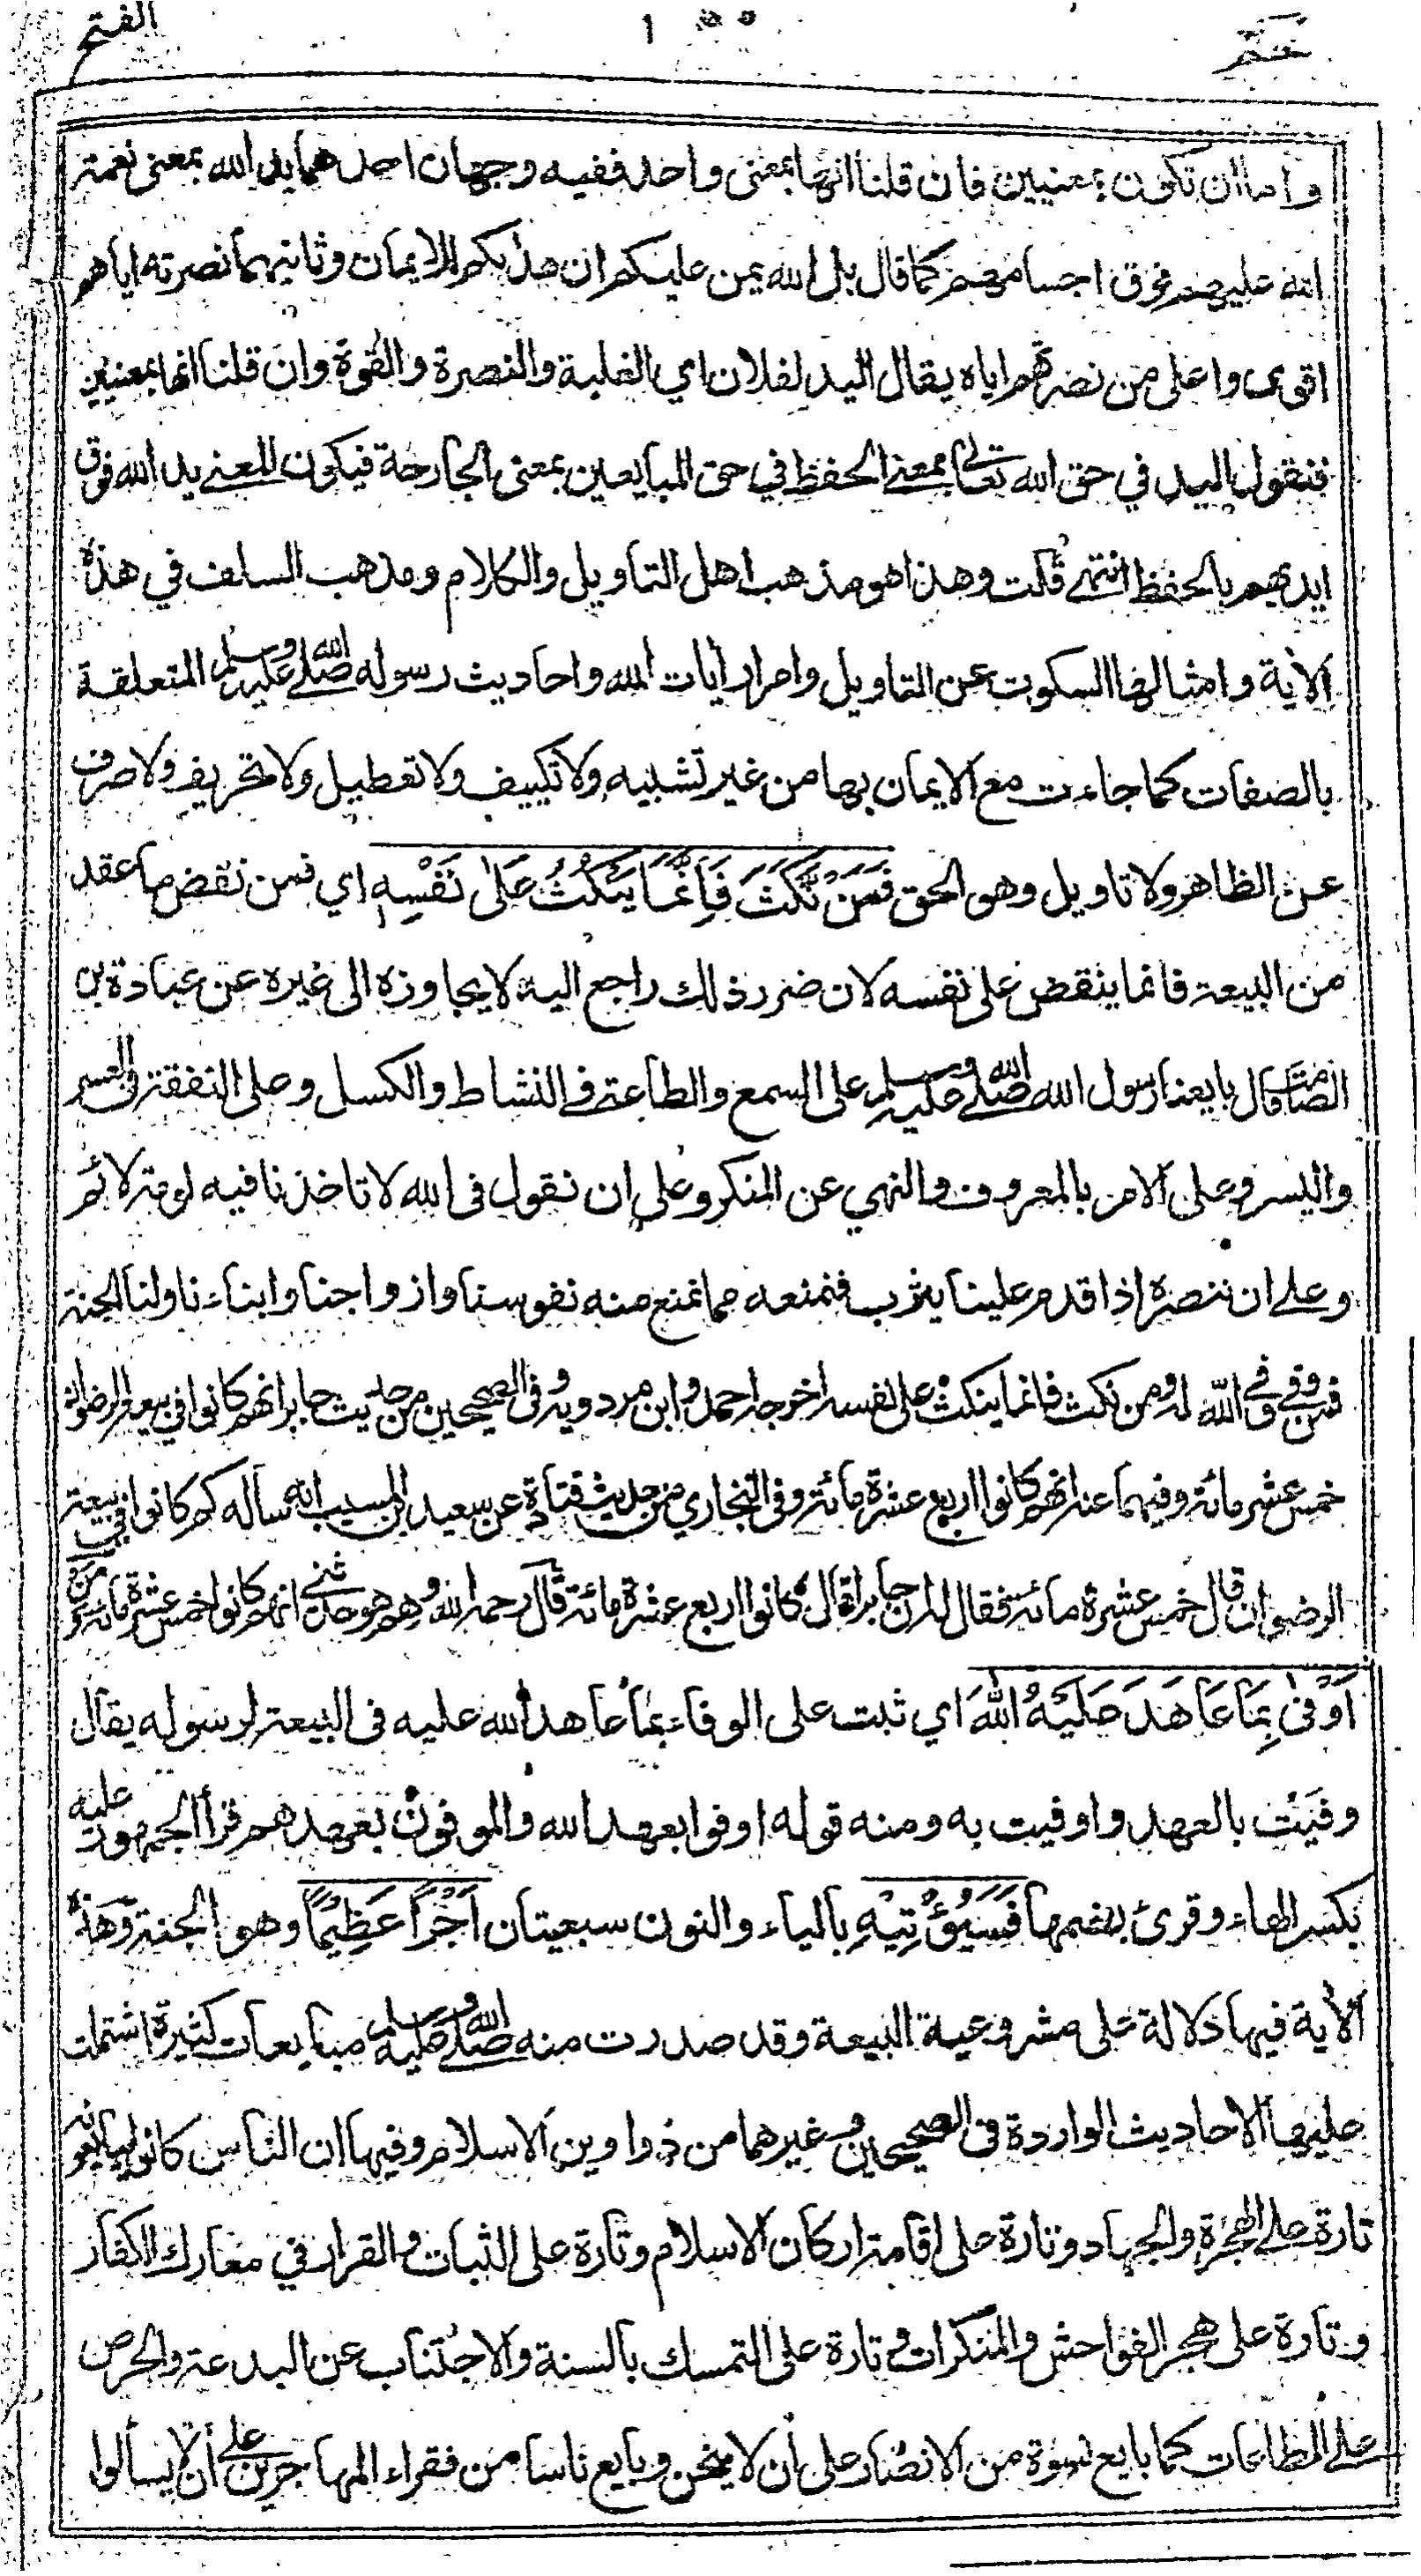 حٰمٓ ١٥٥ الفتح
واما ان تكون بمعنيين فان قلنا انها بمعنى واحد ففيه وجهان احدهما يد الله بمعنى نعمة
الله عليهم فوق اجسامهم كما قال بل الله يمن عليكم ان هدٰىكم للايمان وثانيهما نصرته اياهم
اقوى واعلى من نصرتهم اياه يقال اليد لفلان اي الغلبة والنصرة والقوة وان قلنا انها بمعنيين
فنقول اليد في حق الله تعالى بمعنى الحفظ في حق المبايعين بمعنى الجارحة فيكون المعنى يد الله فوق
ايديهم بالحفظ انتهى قلت وهذا هو مذهب اهل التاويل والكلام ومذهب السلف في هذه
الاية وامثالها السكوت عن التاويل وامرار اٰيات الله واحاديث رسوله صلى الله عليه وسلم المتعلقة
بالصفات كما جاءت مع الايمان بها من غير تشبيه ولا تكييف ولا تعطيل ولا تحريف ولا صرف
عن الظاهر ولا تاويل وهو الحق فَمَنْ نَّكَثَ فَاِنَّمَا يَنْكُثُ عَلٰى نَفْسِهٖ اي فمن نقض ما عقد
من البيعة فانما ينقض على نفسه لان ضرر ذلك راجع اليه لا يجاوزه الى غيره عن عبادة بن
الصامت قال بايعنا رسول الله صلى الله عليه وسلم على السمع والطاعة في النشاط والكسل وعلى النفقة في العسر
واليسر وعلى الامر بالمعروف والنهي عن المنكر وعلى ان نقول في الله لا تاخذنا فيه لومة لائم
وعلى ان ننصره اذا قدم علينا يثرب فنمنعه مما نمنع منه نفوسنا وازواجنا وابناءنا ولنا الجنة
فمن وفى وفى الله له ومن نكث فانما ينكث على نفسه اخرجه احمد وابن مردويه وفى الصحيحين من حديث جابر انهم كانوا في بيعة الرضوان
خمس عشرة مائة وفيهما عنه انهم كانوا اربع عشرة مائة وفى البخاري من حديث قتادة عن سعيد ابن المسيب انه ساله كم كانوا في بيعة
الرضوان قال خمس عشرة مائة فقال له ان جابرا قال كانوا اربع عشرة مائة قال رحمه الله وهم هو حدثني انهم كانوا خمس عشرة مائة وَمَنْ
اَوْفٰى بِمَا عَاهَدَ عَلَيْهُ اللّٰهَ اي ثبت على الوفاء بما عاهد الله عليه فى البيعة لرسوله يقال
وفَيْت بالعهد واوفيت به ومنه قوله اوفوا بعهد الله والموفون بعهدهم قرأ الجمهور عليه
بكسر الهاء وقرئ بضمها فَسَيُؤْتِيْهِ بالياء والنون سبعيتان اَجْرًا عَظِيْمًا وهو الجنة وهذه
الاية فيها دلالة على مشروعية البيعة وقد صدرت منه صلى الله عليه وسلم مبايعات كثيرة اشتملت
عليها الاحاديث الواردة فى الصحيحين وغيرهما من دواوين الاسلام وفيها ان الناس كانوا يبايعونه
تارة على الهجرة والجهاد وتارة على اقامة اركان الاسلام وتارة على الثبات والقرار في معارك الكفار
وتارة على هجر الفواحش والمنكرات وتارة على التمسك بالسنة والاجتناب عن البدعة والحرص
على الطاعات كما بايع نسوة من الانصار على أن لا ينحن وبايع ناسا من فقراء المهاجرين على أن لا يسألوا